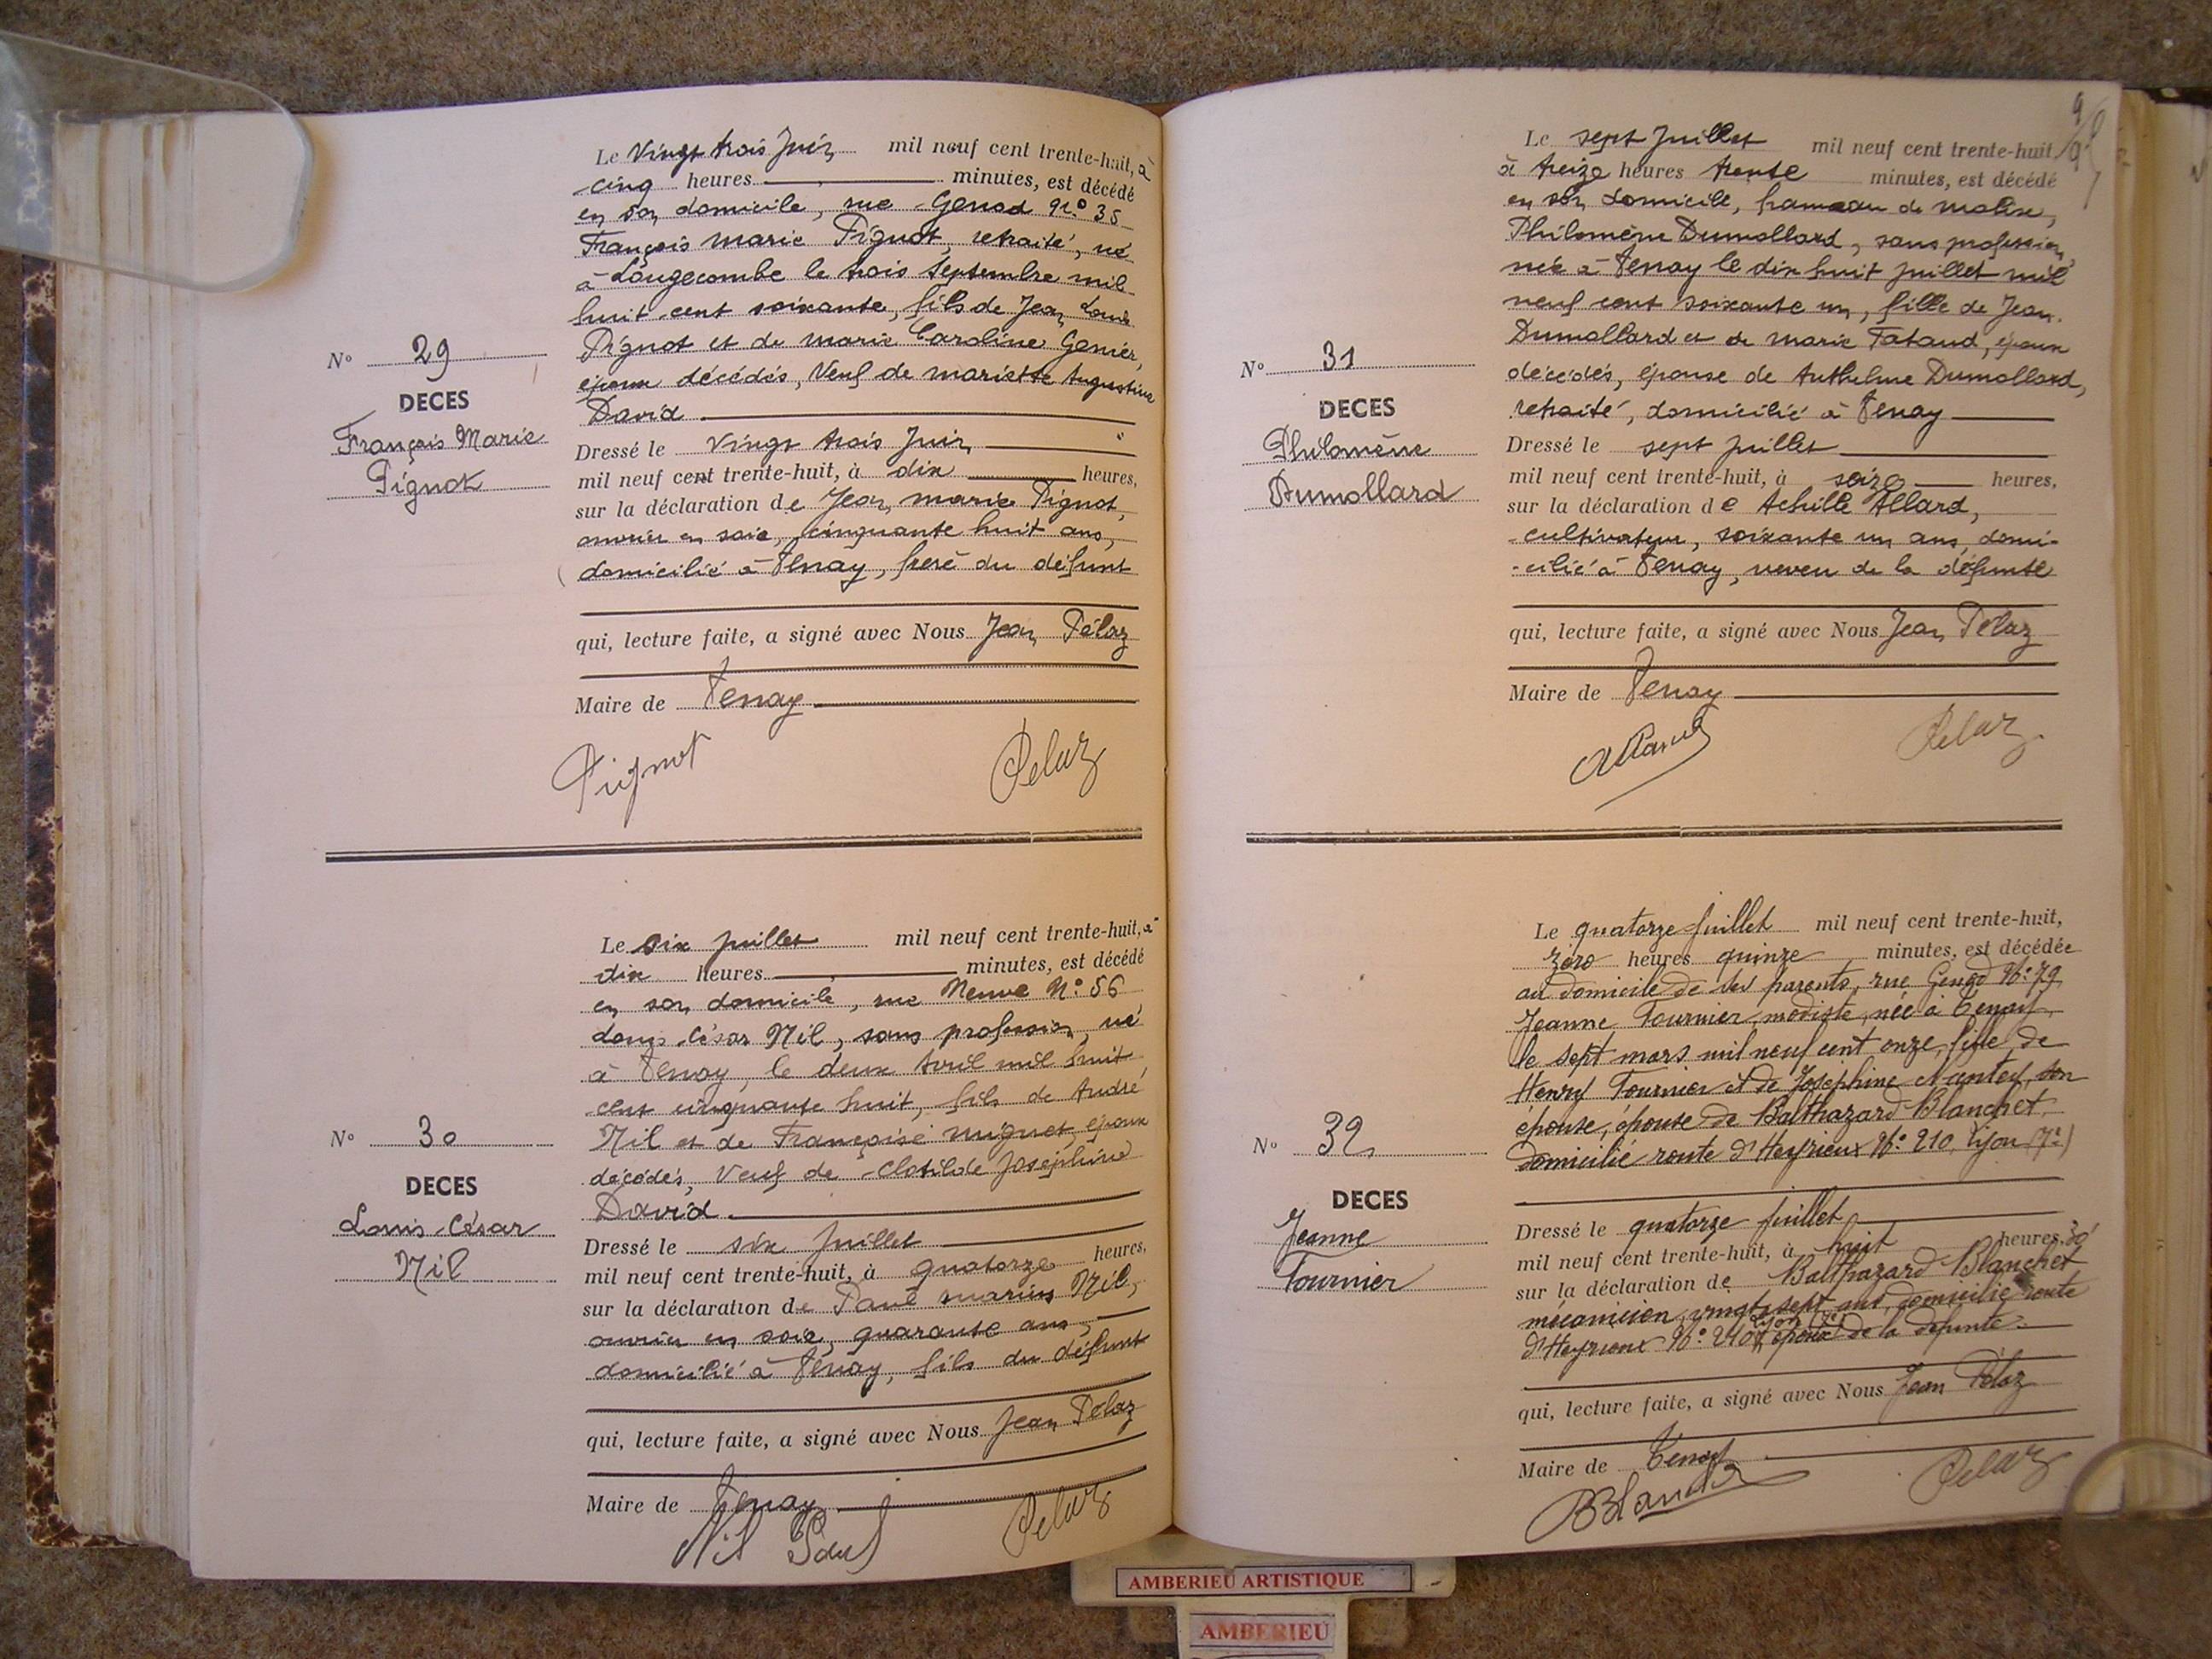 Le Vingt trois Juin mil neuf cent trente-huit, à
cinq heures minutes, est décédé
en son domicile, rue Genod N° 35
François Marie Pignot, retraité, né
à Longecombe le trois Septembre mil
huit cent soixante, fils de Jean Louis
Pignot et de Marie Caroline Genier,
époux décédés, Veuf de Mariette Augustine
David
N° 29
DECES
François Marie
Pignot
Dressé le Vingt trois Juin
mil neuf cent trente-huit, à dix heures,
sur la déclaration de Jean Marie Pignot,
ouvrier en soie, cinquante huit ans,
domicilié à Tenay, frère du défunt
qui, lecture faite, a signé avec Nous Jean Pélaz
Maire de Tenay
Pignot Pelaz
Le Six Juillet mil neuf cent trente-huit, à
dix heures minutes, est décédé
en son domicile, rue Neuve N° 56
Louis César Nil, sans profession, né
à Tenay, le deux Avril mil huit
cent cinquante huit, fils de André
Nil et de Françoise Miguet, époux
décédés, Veuf de Clotilde Joséphine
David
N° 30
DECES
Louis César
Nil
Dressé le six Juillet
mil neuf cent trente-huit, à quatorze heures,
sur la déclaration de Paul Marius Nil,
ouvrier en soie, quarante ans,
domicilié à Tenay, fils du défunt
qui, lecture faite, a signé avec Nous Jean Pélaz
Maire de Tenay
Nil Paul Pelaz
9
Le sept Juillet mil neuf cent trente-huit
à treize heures trente minutes, est décédé
en son domicile, hameau de Malix,
Philomène Dumollard, sans profession,
née à Tenay le dix huit Juillet mil
neuf cent soixante un, fille de Jean
Dumollard et de Marie Tataud, époux
décédés, épouse de Anthelme Dumollard,
retraité, domicilié à Tenay
N° 31
DECES
Philomène
Dumollard
Dressé le sept Juillet
mil neuf cent trente-huit, à seize heures,
sur la déclaration de Achille Allard,
cultivateur, soixante un ans, domi-
-cilié à Tenay, neveu de la défunte
qui, lecture faite, a signé avec Nous Jean Pélaz
Maire de Tenay
Allard Pelaz
Le quatorze Juillet mil neuf cent trente-huit,
zéro heures quinze minutes, est décédée
au domicile de ses parents, rue Genod N° 79
Jeanne Fournier, modiste, née à Tenay,
le sept mars mil neuf cent onze, fille de
Henry Fournier et de Joséphine Nantey, son
épouse, épouse de Balthazard Blanchet,
domicilié route d'Heyrieux N° 210, Lyon (7e)
N° 32
DECES
Jeanne
Fournier
Dressé le quatorze Juillet
mil neuf cent trente-huit, à huit heures, 30
sur la déclaration de Balthazard Blanchet
mécanicien, vingt sept ans, domicilié route
d'Heyrieux N° 210, Lyon (7e) époux de la défunte
qui, lecture faite, a signé avec Nous Jean Pélaz
Maire de Tenay
Pelaz
AMBERIEU ARTISTIQUE
AMBERIEU